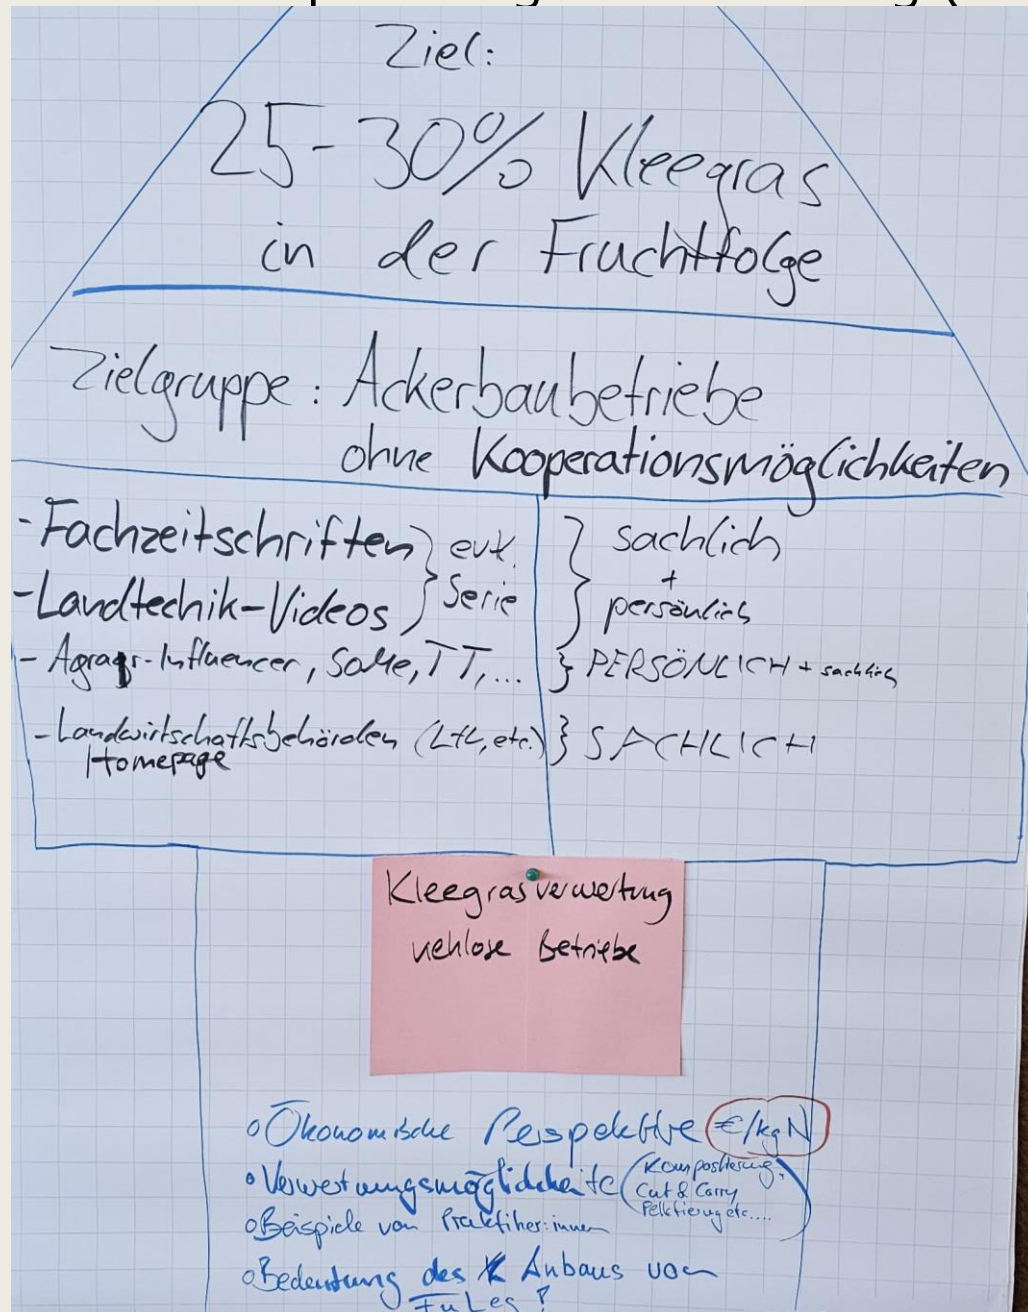 Ziel:
25-30% Kleegras
in der Fruchtfolge
Zielgruppe: Ackerbaubetriebe
ohne Kooperationsmöglichkeiten
- Fachzeitschriften } evt. Serie
- Landtechnik-Videos
} sachlich
+
persönlich
- Agrar-Influencer, SoMe, TT, ... } PERSÖNLICH + sachlich
- Landwirtschaftsbehörden (LfL, etc.) } SACHLICH
Homepage
Kleegrasverwertung
viehlose Betriebe
o Ökonomische Perspektive €/kg N
• Verwertungsmöglichkeite (Kompostierung,
Cut & Carry
Pelletierung etc....)
o Beispiele von Praktiker:innen
o Bedeutung des Anbaus von
FuLeg?